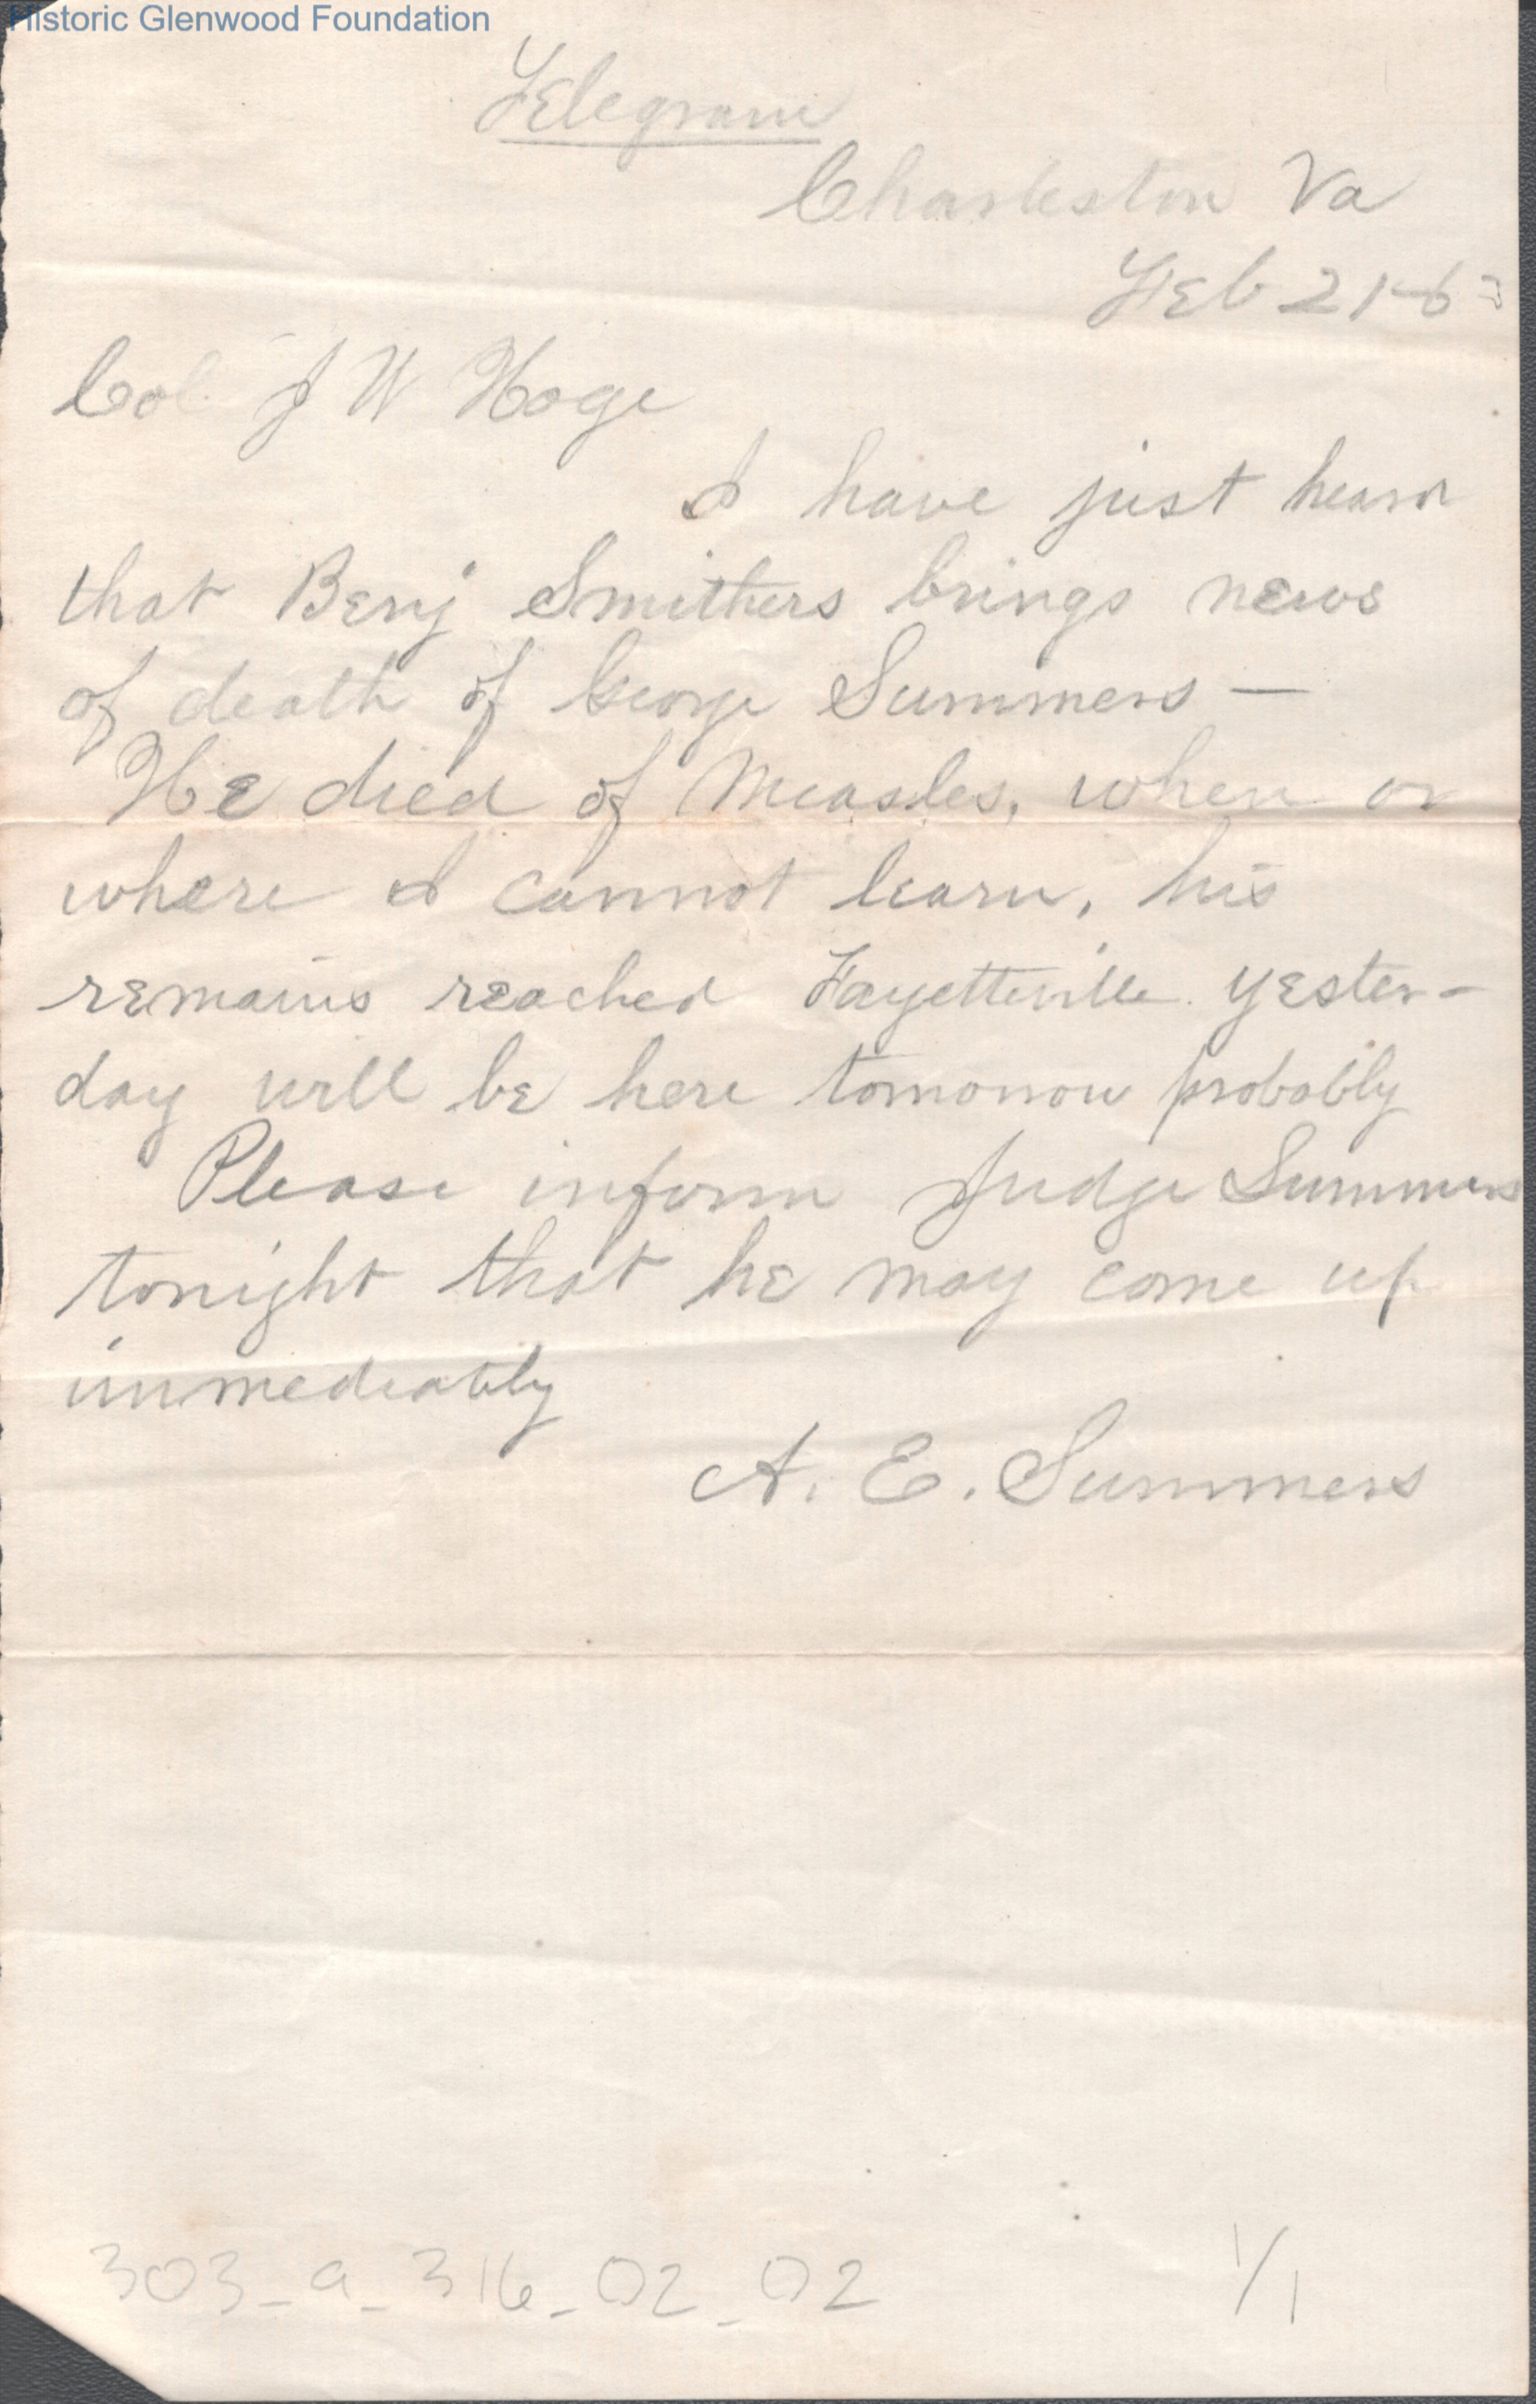 Historic Glenwood Foundation
Telegram
Charleston Va
Feb 21 - 63
Col J W Hoge
I have just heard
that Benj Smithers brings news
of death of George Summers —
He died of Measles, when or
where I cannot learn, his
remains reached Fayetteville yester-
day will be here tomorrow probably
Please inform Judge Summers
tonight that he may come up
immediately
A. E. Summers
303_a_316_02_02 1/1